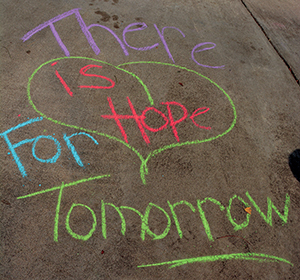 There
is
Hope
For
Tomorrow